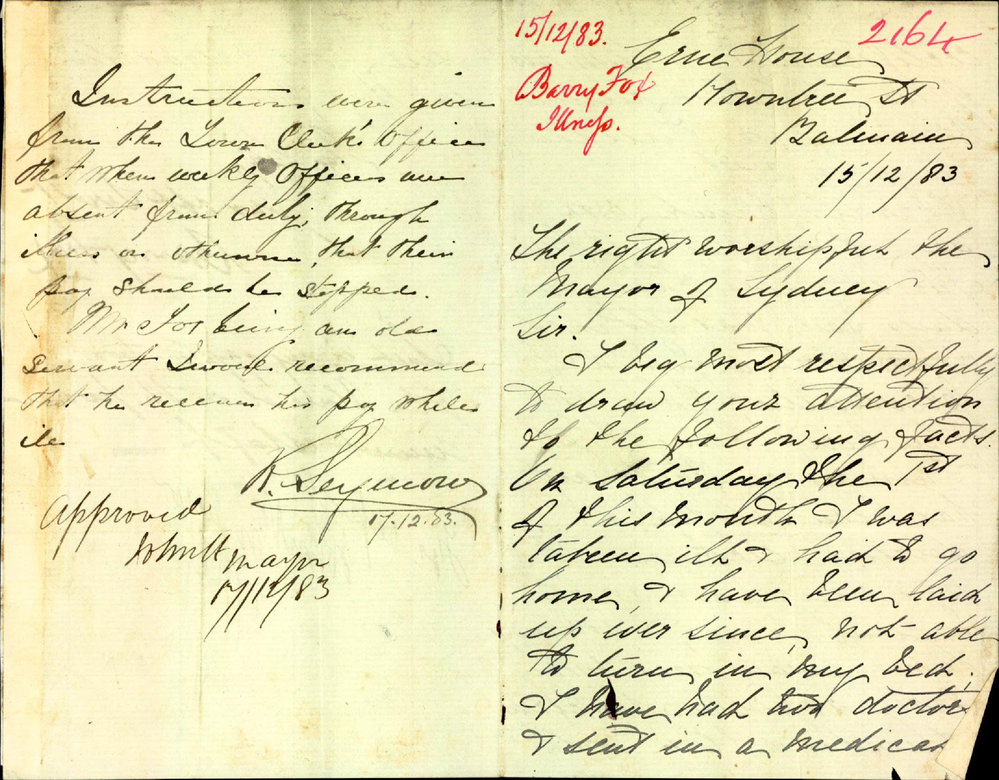 Instructions were given
from the Town Clerk's Office
that when weekly Officers are
absent from duty, through
illness or otherwise, that their
pay should be stopped.
Mr Fox being an old
servant I would recommend
that he receives his pay while
ill
R. Seymour
17.12.83.
Approved
Mayor
17/12/83
15/12/83.
2164
Barry Fox
Illness.
Erne House
Rowntree St
Balmain
15/12/83
The right worshipful the
Mayor of Sydney
Sir.
I beg most respectfully
to draw your attention
to the following facts.
On Saturday the 1st
of this month I was
taken ill & had to go
home, & have been laid
up ever since, not able
to turn in my bed.
I have had two doctors
& sent in a medical